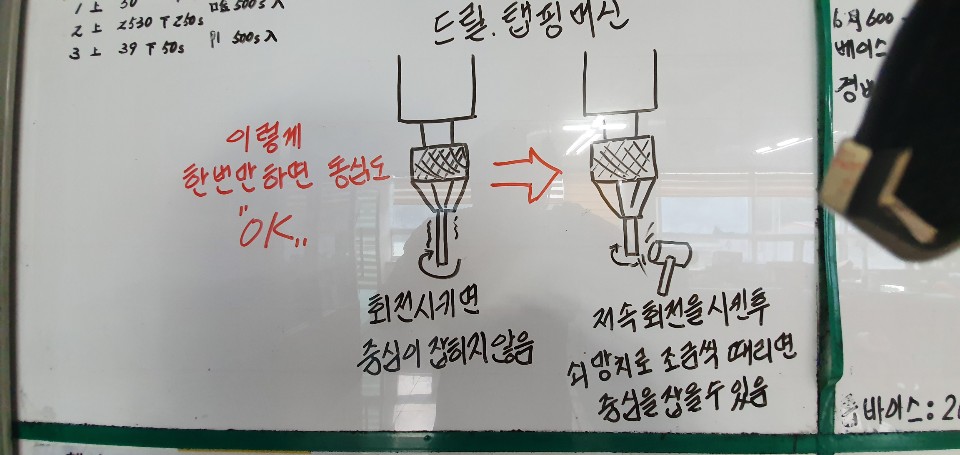 1 上 30 500s入
2 上 2530 〒250s
3 上 39 〒50s 500s入
드릴.탭핑머신
이렇게
한번만하면 동심도
"OK"
회전시키면
중심이 잡히지 않음
저속회전을 시킨후
쇠망치로 조금씩 때리면
중심을 잡을수 있음
6월 600
베이스
바이스: 2